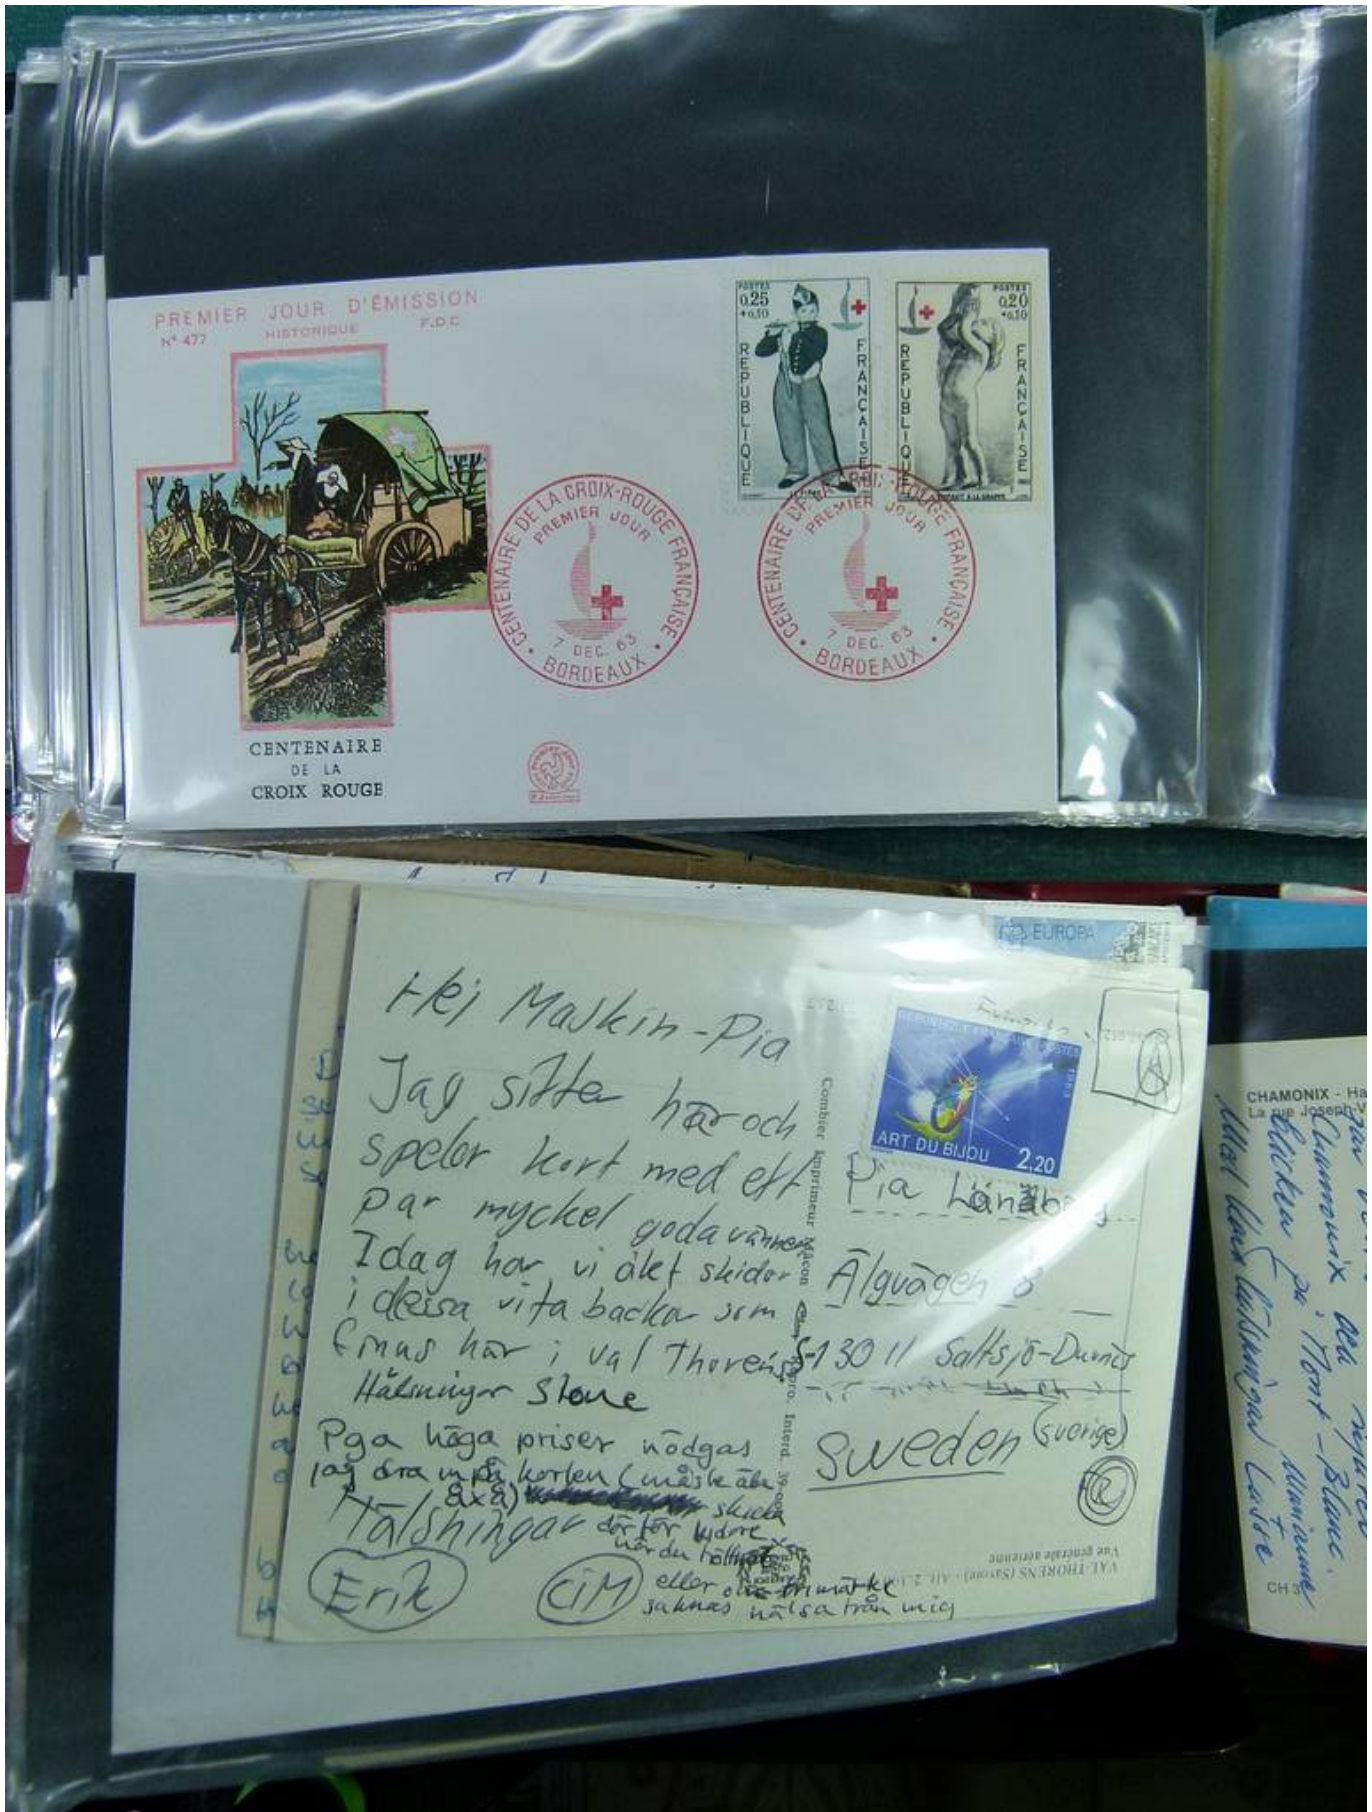 PREMIER JOUR D'ÉMISSION
N° 477 HISTORIQUE F.D.C
POSTES
0,25
+0,10
REPUBLIQUE
FRANÇAISE
POSTES
0,20
+0,10
REPUBLIQUE
FRANÇAISE
• CENTENAIRE DE LA CROIX-ROUGE FRANÇAISE •
PREMIER JOUR
7 DEC. 63
BORDEAUX
• CENTENAIRE DE LA CROIX-ROUGE FRANÇAISE •
PREMIER JOUR
7 DEC. 63
BORDEAUX
CENTENAIRE
DE LA
CROIX ROUGE
EUROPA
Hej Maskin-Pia
Jag sitter här och
spelar kort med ett
par mycket goda vänner
Idag har vi åket skidor
i dessa vita backar som
finns här i Val Thorens
Hälsningar
Pga höga priser nödgas
jag dra in på korten (måste äta
också) skicka
därför vidare
Hälsningar
när du
eller frimärke
saknas hälsa från mig
Erik
CIM
Combier Imprimeur Mâcon
Repro. Interd.
REPUBLIQUE FRANÇAISE POSTES
ART DU BIJOU 2,20
Pia
Älgvägen 8
S-130 11 Saltsjö-Duvnäs
Sweden (Sverige)
VAL-THORENS (Savoie) - Alt.
Vue générale aérienne
CHAMONIX - Ha
La rue Joseph-V
Chamonix
Backen på Mont-Blanc.
Lasse
CH 3